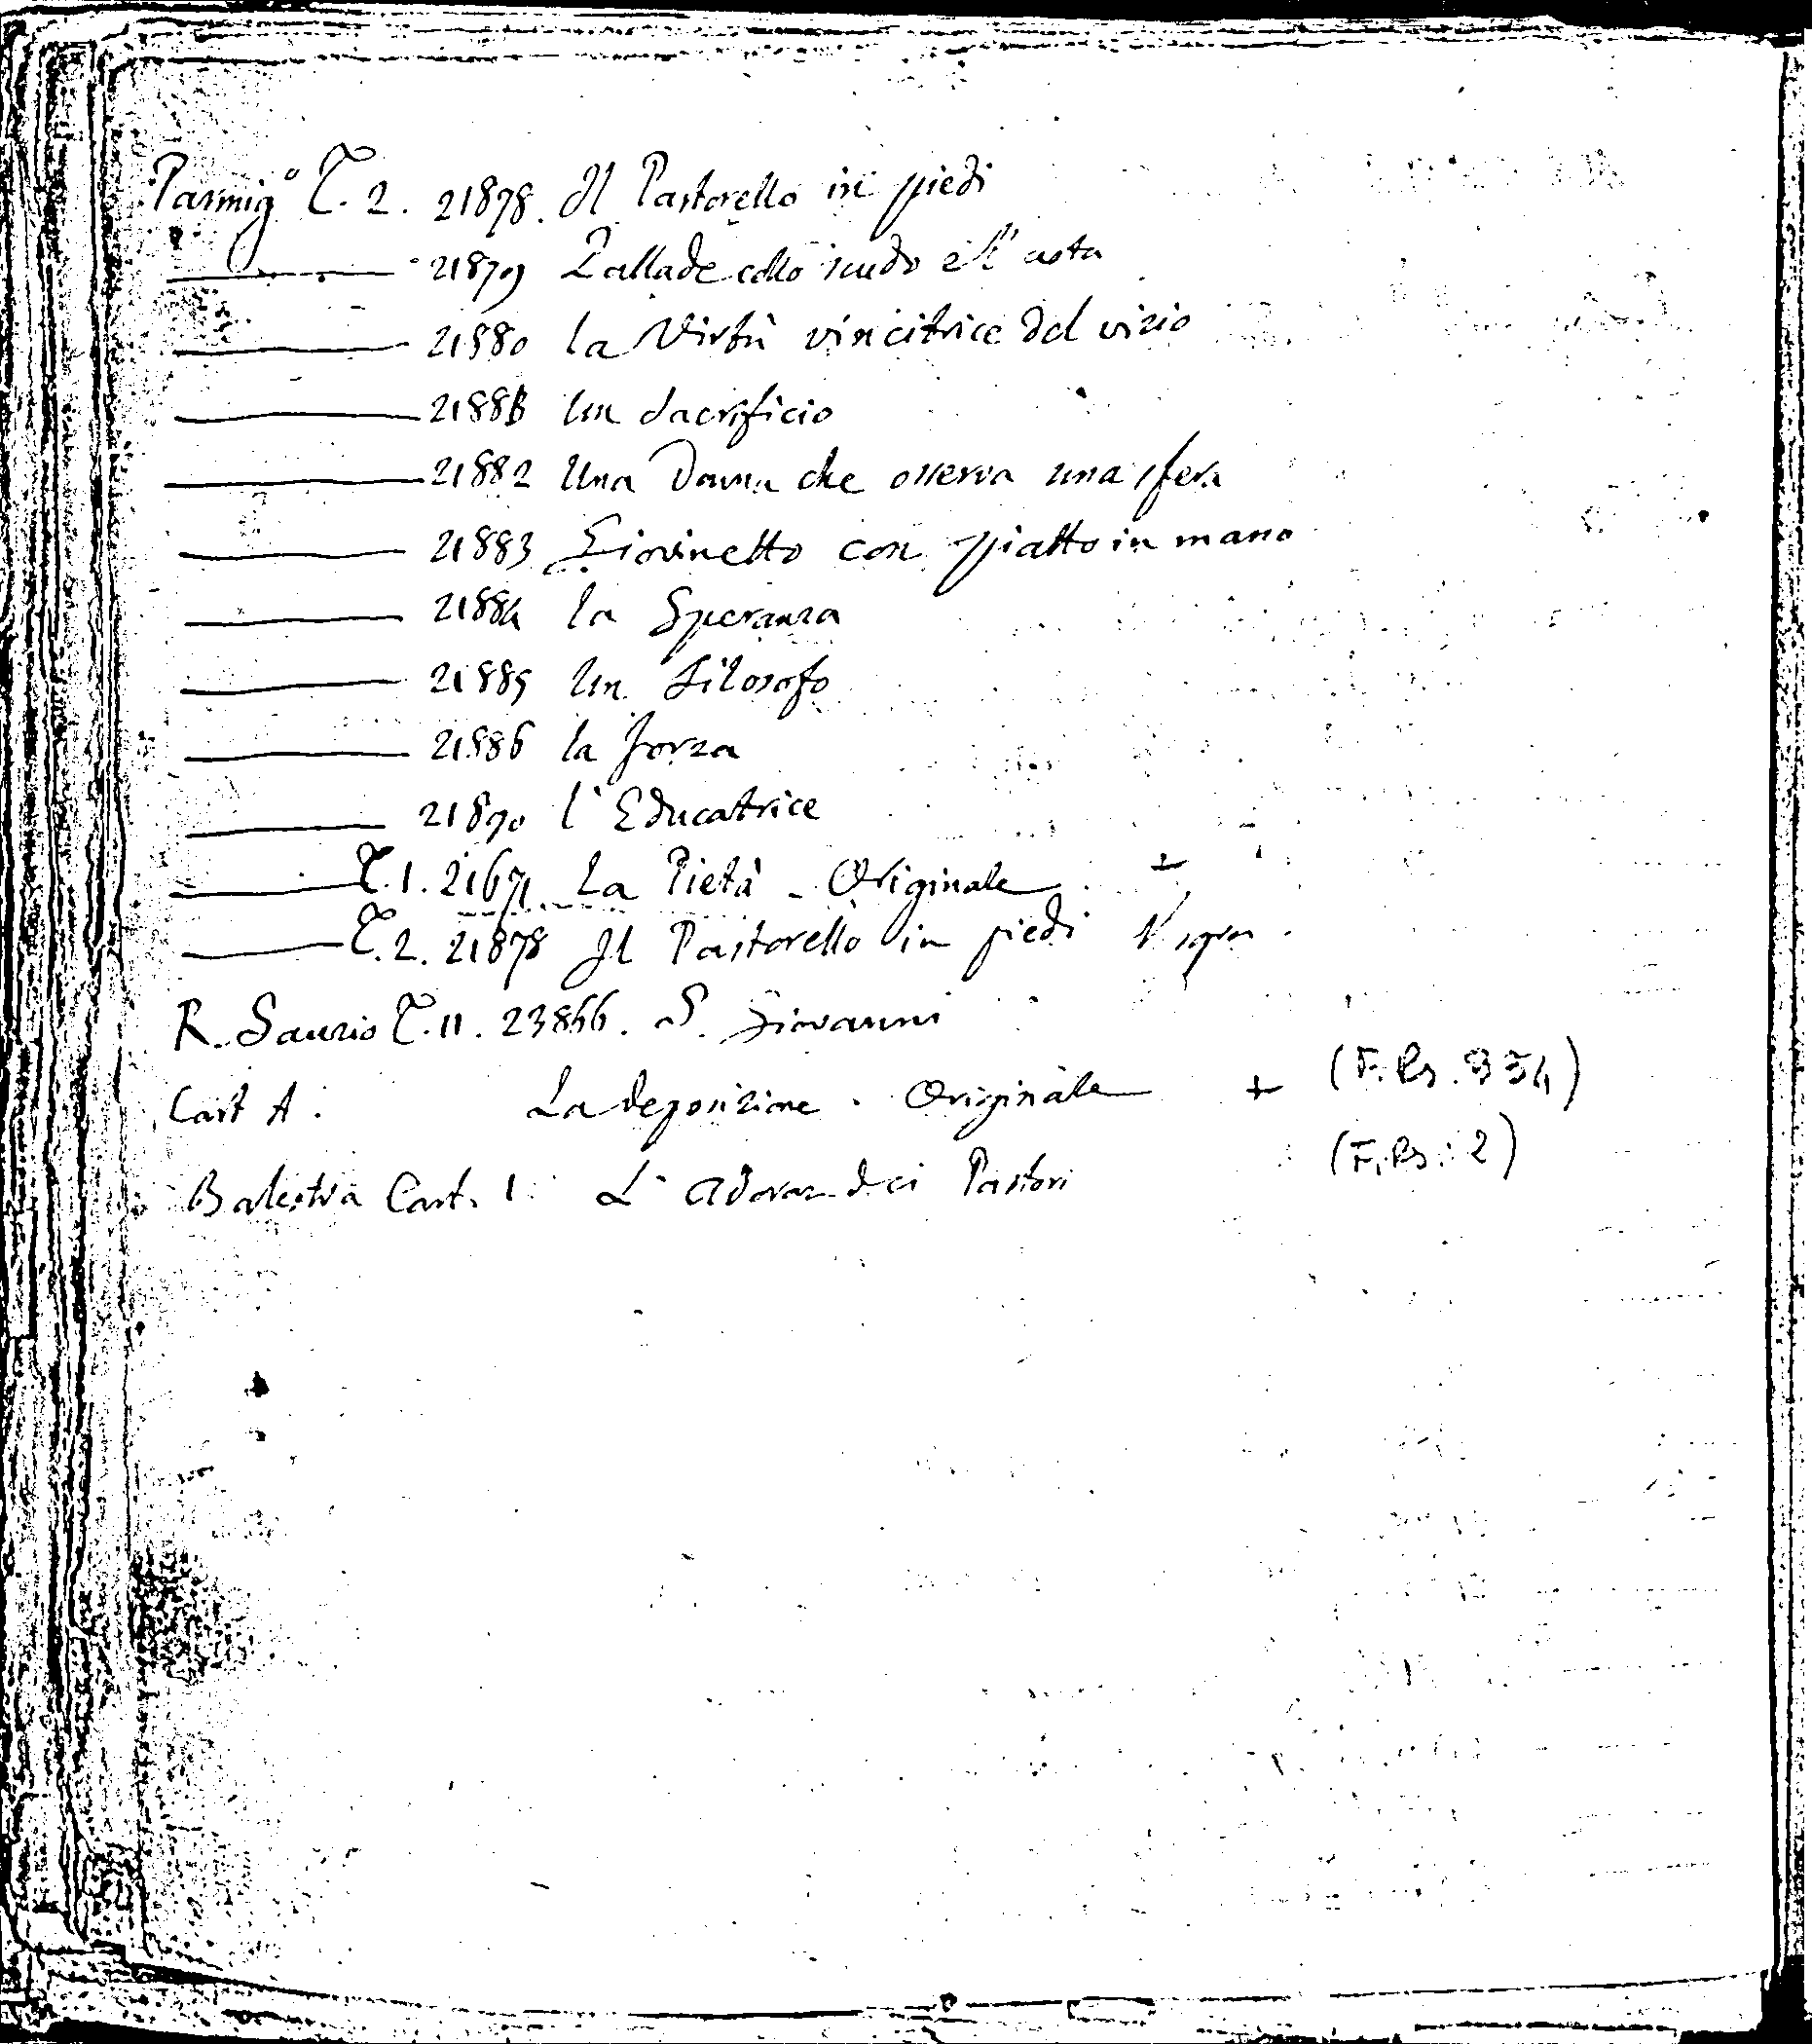 Parmig.º T. 2. 21878. Il Pastorello in piedi
21879 Pallade collo scudo e l'asta
21880 la Virtù vincitrice del vizio
2188 Un Sacrificio
21882 Una Donna che osserva una sfera
21883 Giovinetto con piatto in mano
21884 la Speranza
21885 Un Filosofo
21886 la Forza
21890 l'Educatrice
T. 1. 21671 La Pietà - Originale +
T. 2. 21878 Il Pastorello in piedi
R. Sanzio T. 11. 23866. S. Giovanni
Cart A. La deposizione. Originale + (F. Rs. 334)
Balestra Cart. 1. L'Adoraz. dei Pastori (F. Rs. 2)